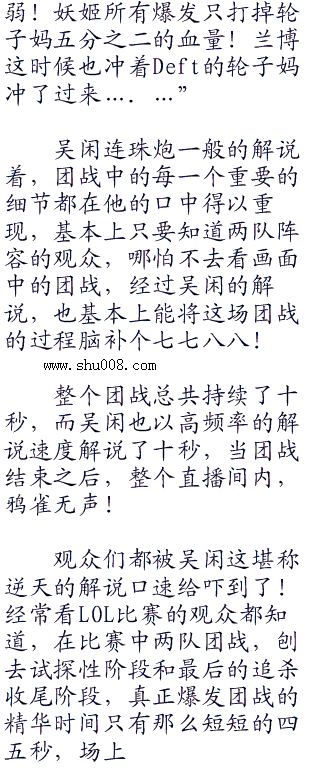 弱！妖姬所有爆发只打掉轮
子妈五分之二的血量！兰博
这时候也冲着Deft的轮子妈
冲了过来…．…”
吴闲连珠炮一般的解说
着，团战中的每一个重要的
细节都在他的口中得以重
现，基本上只要知道两队阵
容的观众，哪怕不去看画面
中的团战，经过吴闲的解
说，也基本上能将这场团战
的过程脑补个七七八八！
www.shu008.com
整个团战总共持续了十
秒，而吴闲也以高频率的解
说速度解说了十秒，当团战
结束之后，整个直播间内，
鸦雀无声！
观众们都被吴闲这堪称
逆天的解说口速给吓到了！
经常看LOL比赛的观众都知
道，在比赛中两队团战，刨
去试探性阶段和最后的追杀
收尾阶段，真正爆发团战的
精华时间只有那么短短的四
五秒，场上